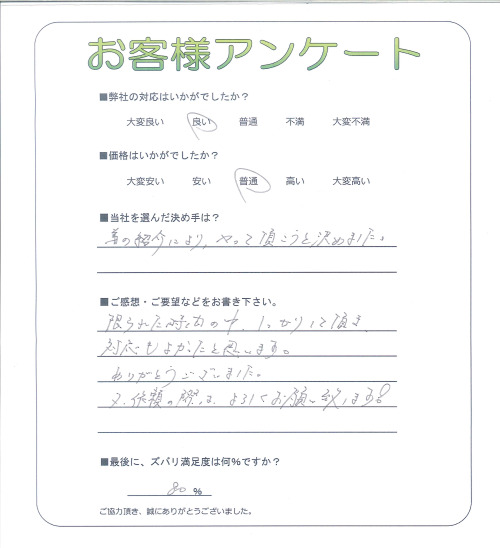 お客様アンケート
■弊社の対応はいかがでしたか?
大変良い 良い 普通 不満 大変不満
■価格はいかがでしたか?
大変安い 安い 普通 高い 大変高い
■当社を選んだ決め手は?
の紹介により、やって頂こうと決めました。
■ご感想・ご要望などをお書き下さい。
限られた時間の中、しっかりして頂き、
対応もよかったと思います。
ありがとうございました。
又、依頼の際は、よろしくお願い致します。
■最後に、ズバリ満足度は何%ですか?
80 %
ご協力頂き、誠にありがとうございました。